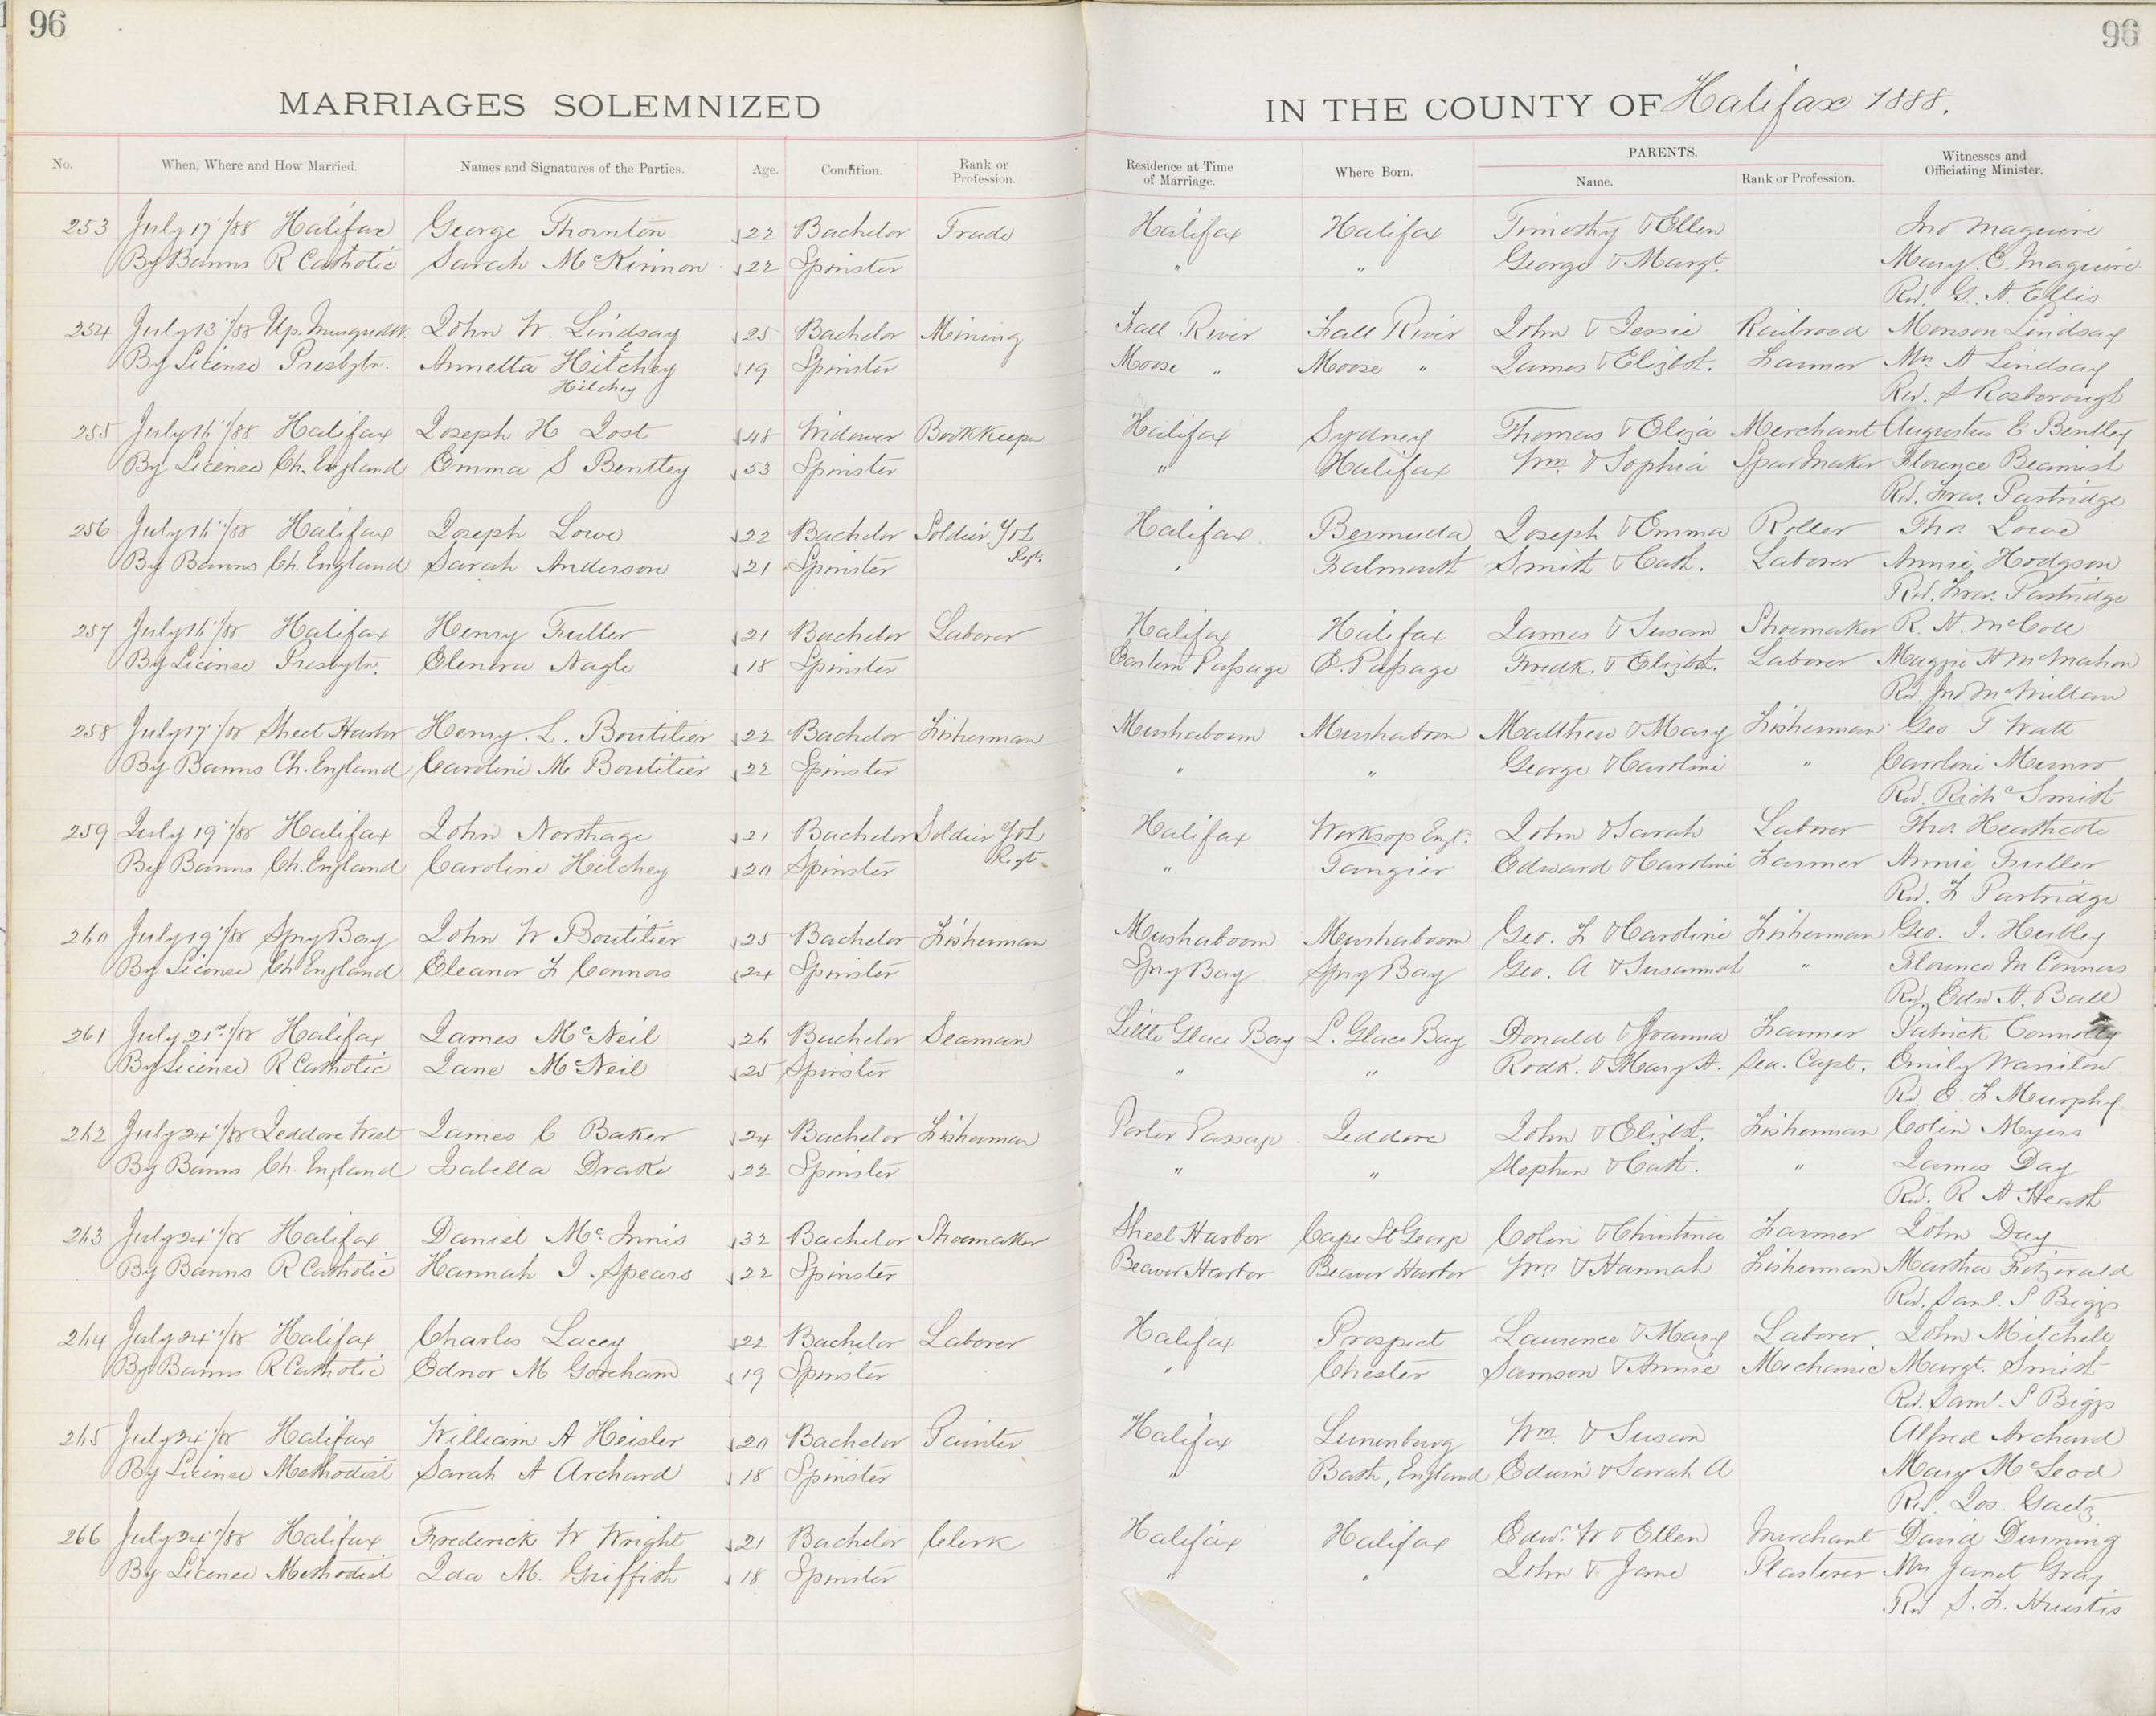 96
96
MARRIAGES SOLEMNIZED
IN THE COUNTY OF Halifax 1888.
No. When, Where and How Married. Names and Signatures of the Parties. Age. Condition. Rank or Profession. Residence at Time of Marriage. Where Born. PARENTS. Name. Rank or Profession. Witnesses and Officiating Minister.
253 July 17"/88 Halifax George Thornton 22 Bachelor Trade Halifax Halifax Timothy & Ellen Jno Maguire
By Banns R Catholic Sarah McKinnon 22 Spinster " " George & Margt. Mary E. Maguire
Rev. G. A. Ellis
254 July 13"/88 Up. John W. Lindsay 25 Bachelor Mining Fall River Fall River John & Jessie Railroad Monson Lindsay
By License Presbytn. Annetta Hitchey 19 Spinster Moose " Moose " James & Elizbth. Farmer Mrs A Lindsay
Hilchey
Rev. S Rosborough
255 July 16"/88 Halifax Joseph H Jost 48 Widower Bookkeeper Halifax Sydney Thomas & Eliza Merchant Augustus E Bentley
By License Ch. England Emma S Bentley 53 Spinster " Halifax Wm. & Sophia Spar Maker Florence Beamish
Rev. Fras. Partridge
256 July 16"/88 Halifax Joseph Lowe 22 Bachelor Soldier Y&L Halifax Bermuda Joseph & Emma Roller Thos. Lowe
Regt.
By Banns Ch. England Sarah Anderson 21 Spinster " Falmouth Smith & Cath. Laborer Annie Hodgson
Rev. Fras. Partridge
257 July 16"/88 Halifax Henry Fuller 21 Bachelor Laborer Halifax Halifax James & Susan Shoemaker R. H. McColl
By License Presbytn. Elenora Nagle 18 Spinster Eastern Passage E. Passage Fredk. & Elizbth. Laborer Maggie H McMahon
Rev. Jno McMillan
258 July 17"/88 Sheet Harbor Henry. L. Boutilier 22 Bachelor Fisherman Mushaboom Mushaboom Matthew & Mary Fisherman Geo. T Watt
By Banns Ch. England Caroline M Boutilier 22 Spinster " " George & Caroline " Caroline Munro
Rev. Richd Smith
259 July 19"/88 Halifax John Northage 21 Bachelor Soldier Y&L Halifax Worksop Engd. John & Sarah Laborer Thos. Heathcote
Regt.
By Banns Ch. England Caroline Hilchey 20 Spinster " Tangier Edward & Caroline Farmer Annie Fuller
Rev. F Partridge
260 July 19"/88 Spry Bay John W Boutilier 25 Bachelor Fisherman Mushaboom Mushaboom Geo. F & Caroline Fisherman Geo. I. Hubley
By License Ch England Eleanor F Connors 24 Spinster Spry Bay Spry Bay Geo. A & Susannah " Florence M Connors
Rev Edw A. Ball
261 July 21st/88 Halifax James McNeil 26 Bachelor Seaman Little Glace Bay L. Glace Bay Donald & Joanna Farmer Patrick Connolly
By License R Catholic Jane McNeil 25 Spinster " " Rodk. & Mary A. Sea. Capt. Emily Wanilow
Rev. E. F Murphy
262 July 24"/88 Jeddore West James C Baker 24 Bachelor Fisherman Porter Passage Jeddore John & Elizbth. Fisherman Colin Myers
By Banns Ch. England Isabella Drake 22 Spinster " " Stephen & Cath. " James Day
Rev. R A Heath
263 July 24"/88 Halifax Daniel McInnis 32 Bachelor Shoemaker Sheet Harbor Cape St George Colin & Christina Farmer John Day
By Banns R Catholic Hannah I. Spears 22 Spinster Beaver Harbor Beaver Harbor Wm & Hannah Fisherman Martha Fitzgerald
Rev. Saml. S Biggs
264 July 24"/88 Halifax Charles Lacey 22 Bachelor Laborer Halifax Prospect Laurence & Mary Laborer John Mitchell
By Banns R Catholic Ednor M Gorcham 19 Spinster " Chester Samson & Annie Mechanic Margt. Smith
Rev. Saml. S Biggs
265 July 24"/88 Halifax William A Heisler 20 Bachelor Painter Halifax Lunenburg Wm. & Susan Alfred Archard
By License Methodist Sarah A Archard 18 Spinster " Bath, England Edwin & Sarah A Mary McLeod
Rev. Jos. Gaetz
266 July 24"/88 Halifax Frederick W Wright 21 Bachelor Clerk Halifax Halifax Edwd. W & Ellen Merchant David Durning
By License Methodist Ida M. Griffith 18 Spinster " " John & Jane Plasterer Mrs Janet Gray
Rev S. F. Huestis